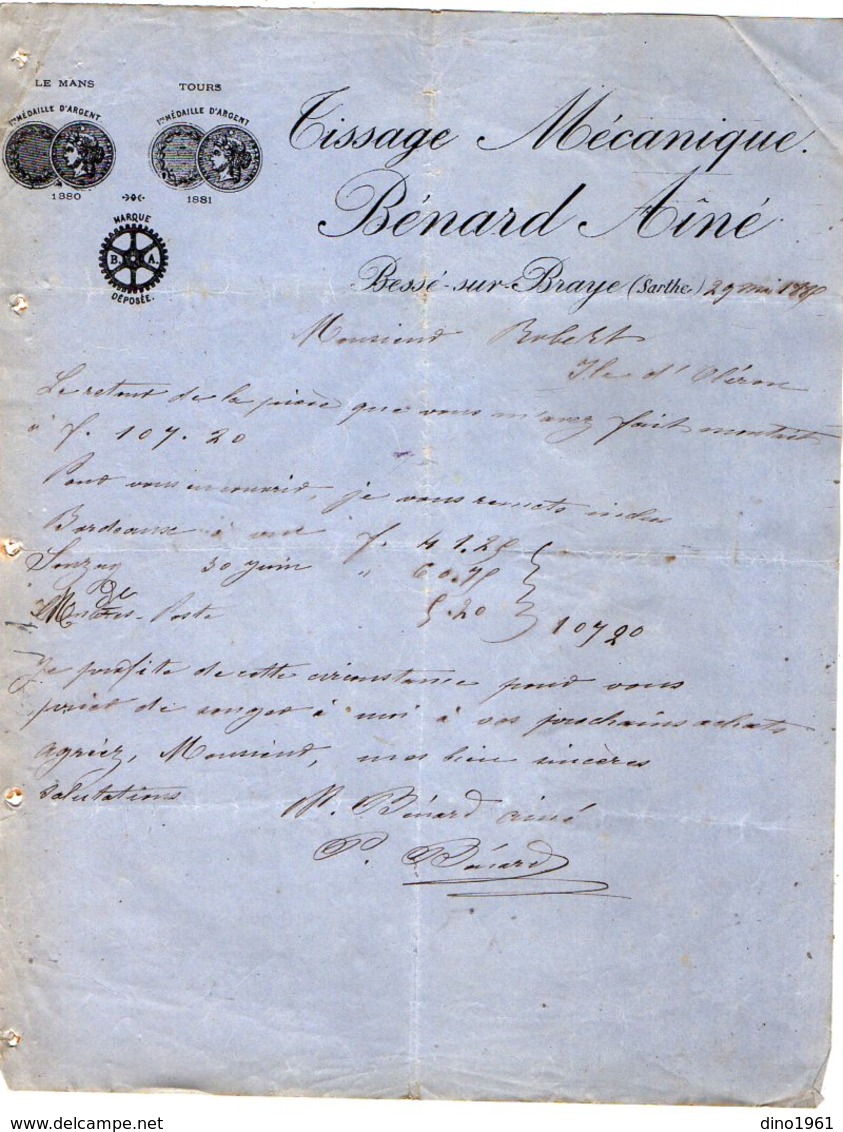 LE MANS
TOURS
1re MÉDAILLE D'ARGENT
1re MÉDAILLE D'ARGENT
1880
1881
MARQUE
B. A.
DÉPOSÉE.
Tissage Mécanique.
Bénard Aîné
Bessé-sur-Braye (Sarthe) 29 mai
Monsieur Robert
Ile d'Oléron
Le retour de la pièce que vous m'avez fait montait
à f. 107.20
Pour vous en couvrir, je vous remets inclus
Bordeaux à vue f. 41.25
30 juin " 60.75
Poste 5.20 107 20
Je profite de cette circonstance pour vous
prier de songer à moi à vos prochains achats
agréez, Monsieur, mes bien sincères
salutations
Bénard ainé
P. Bénard
www.delcampe.net
dino1961